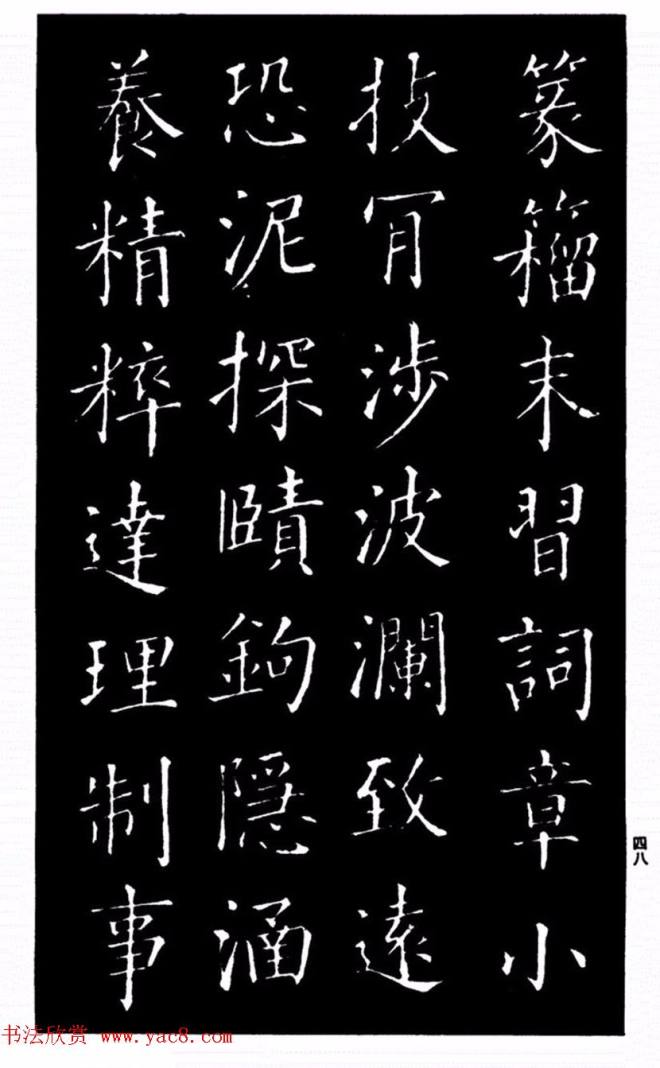 篆籀末習詞章小
技冐涉波瀾致遠
恐泥探賾鉤隱涵
養精粹達理制事
四八
书法欣赏 www.yac8.com